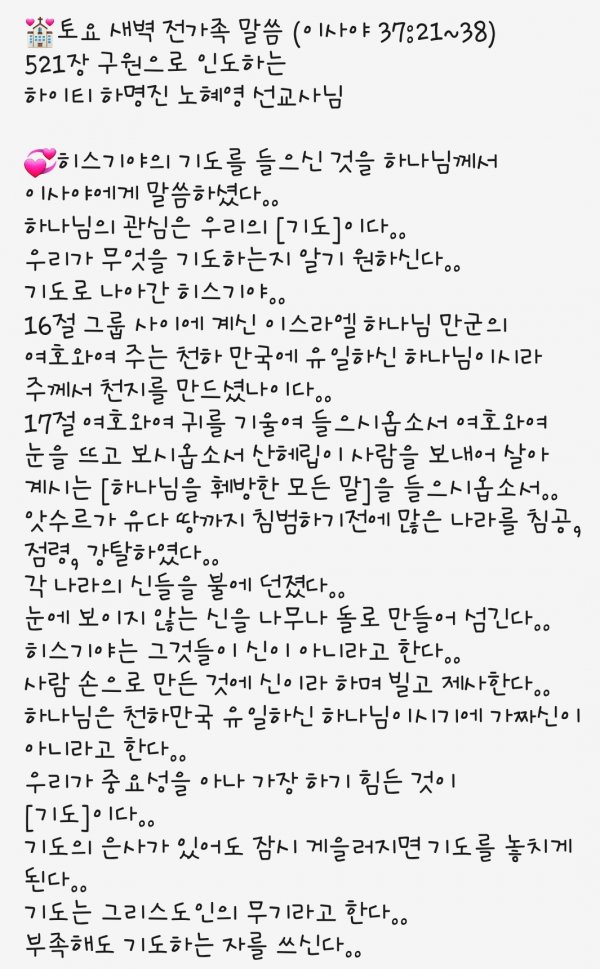 💒토요 새벽 전가족 말씀 (이사야 37:21~38)
521장 구원으로 인도하는
하이티 하명진 노혜영 선교사님
💞히스기야의 기도를 들으신 것을 하나님께서
이사야에게 말씀하셨다..
하나님의 관심은 우리의 [기도]이다..
우리가 무엇을 기도하는지 알기 원하신다..
기도로 나아간 히스기야..
16절 그룹 사이에 계신 이스라엘 하나님 만군의
여호와여 주는 천하 만국에 유일하신 하나님이시라
주께서 천지를 만드셨나이다..
17절 여호와여 귀를 기울여 들으시옵소서 여호와여
눈을 뜨고 보시옵소서 산헤립이 사람을 보내어 살아
계시는 [하나님을 훼방한 모든 말]을 들으시옵소서..
앗수르가 유다 땅까지 침범하기전에 많은 나라를 침공,
점령, 강탈하였다..
각 나라의 신들을 불에 던졌다..
눈에 보이지 않는 신을 나무나 돌로 만들어 섬긴다..
히스기야는 그것들이 신이 아니라고 한다..
사람 손으로 만든 것에 신이라 하며 빌고 제사한다..
하나님은 천하만국 유일하신 하나님이시기에 가짜신이
아니라고 한다..
우리가 중요성을 아나 가장 하기 힘든 것이
[기도]이다..
기도의 은사가 있어도 잠시 게을러지면 기도를 놓치게
된다..
기도는 그리스도인의 무기라고 한다..
부족해도 기도하는 자를 쓰신다..